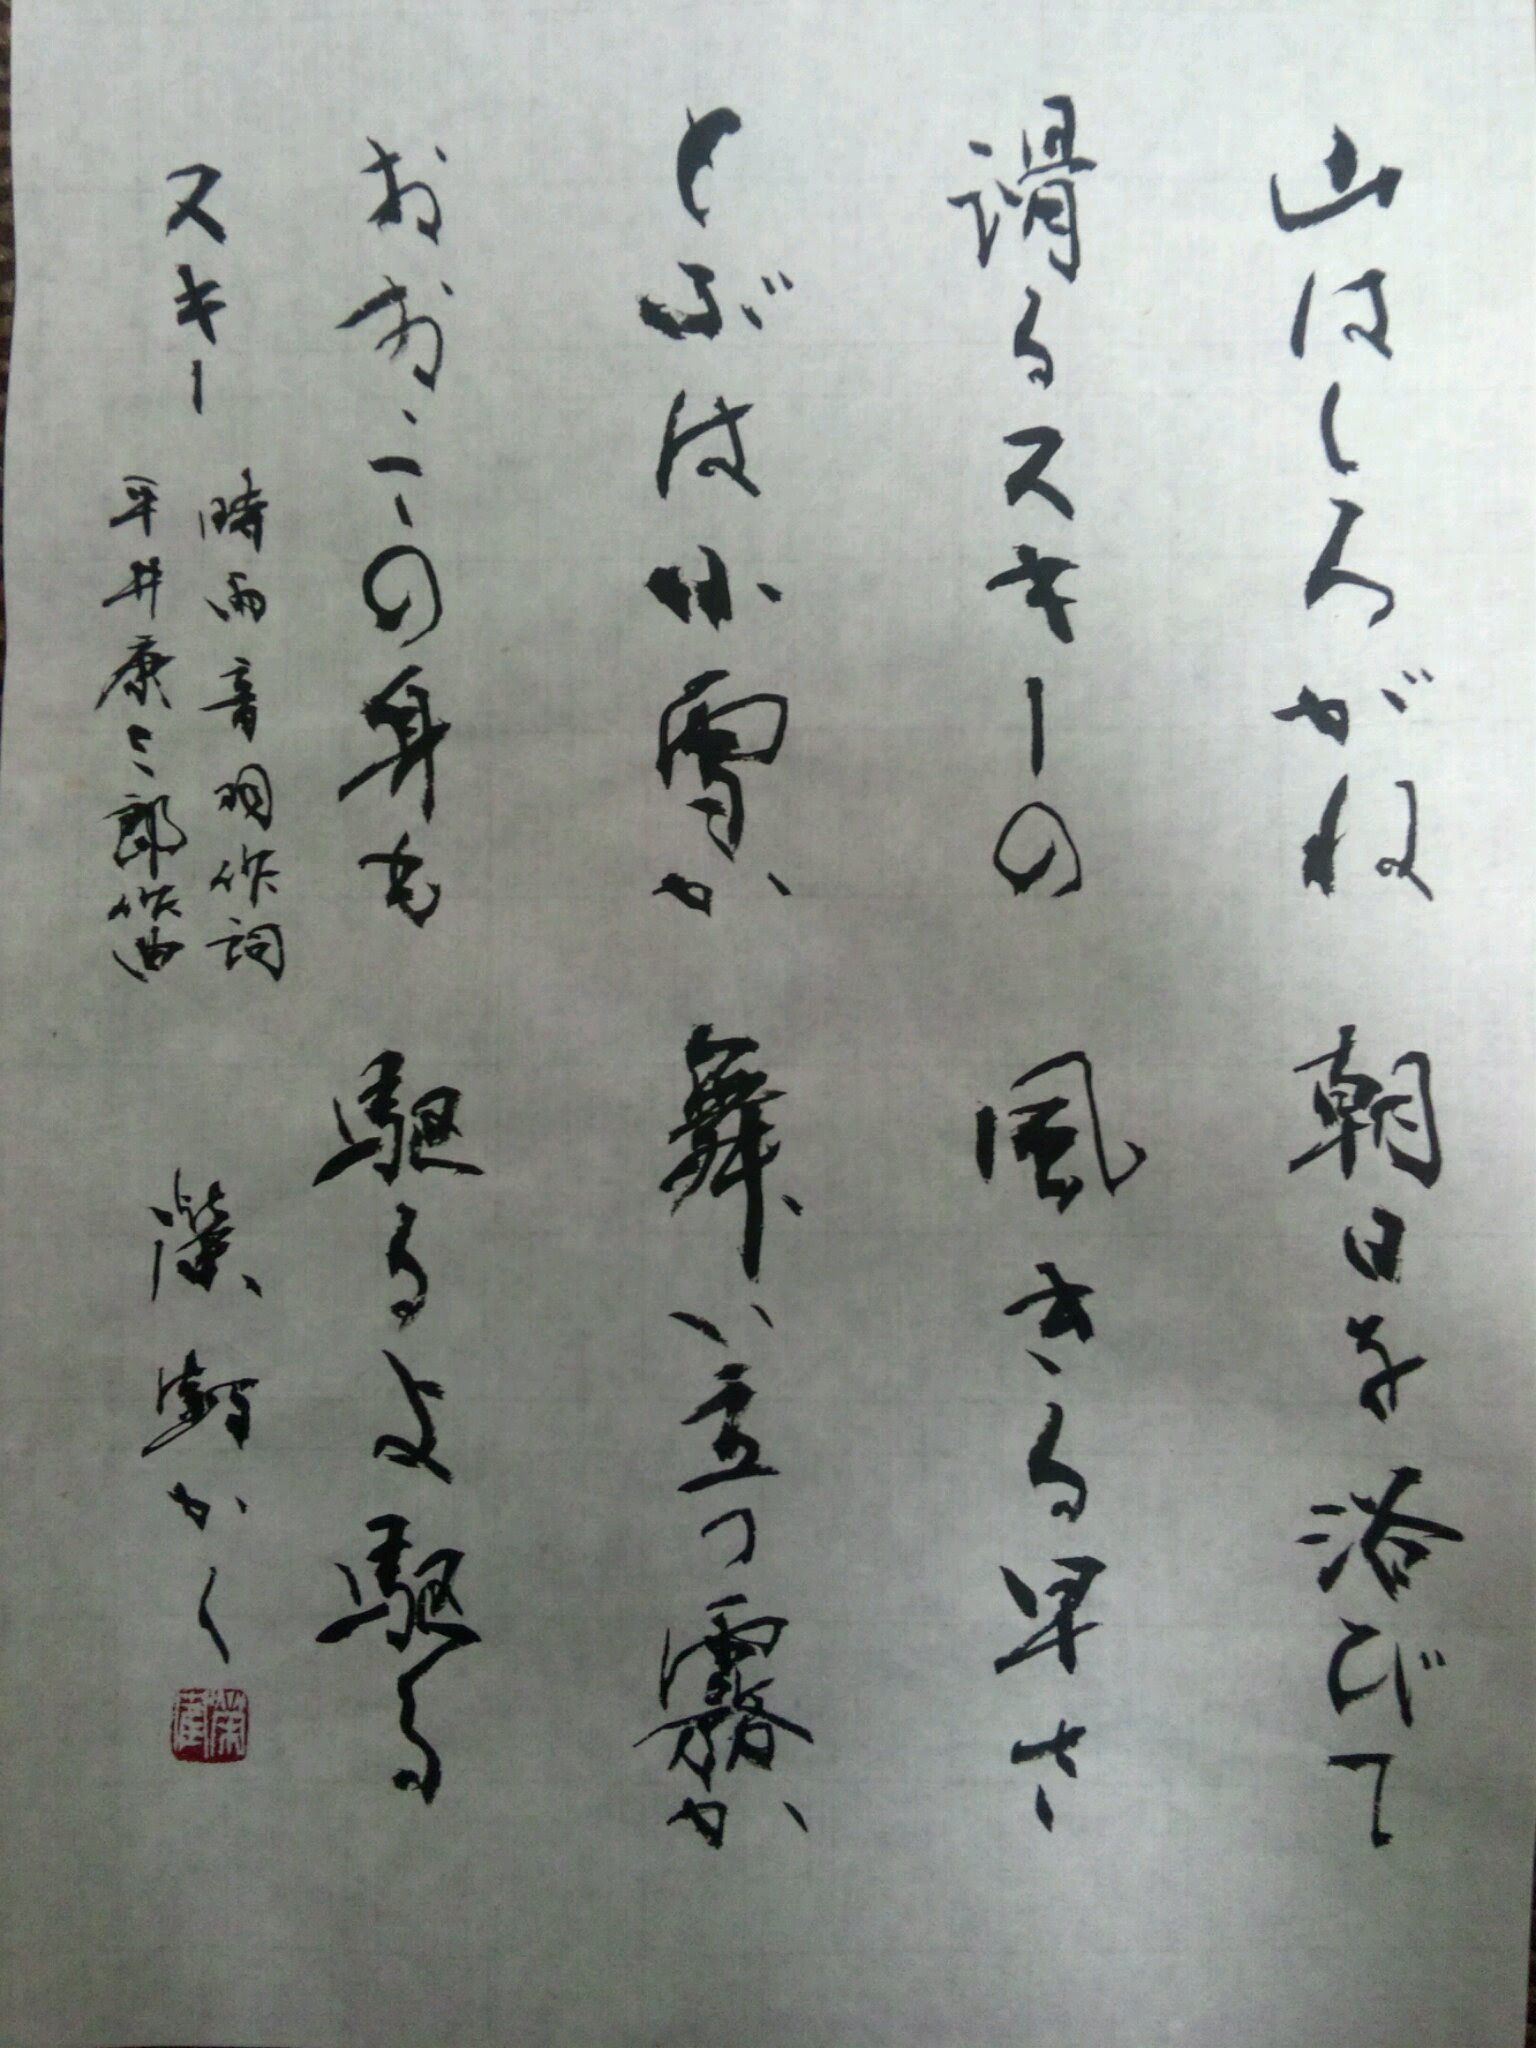 山はしろがね 朝日を浴びて
滑るスキーの 風きる早さ
とぶは小雪か 舞い立つ霧か
おおこの身も 駆るよ駆る
スキー
時雨音羽作詞
平井康三郎作曲
かく